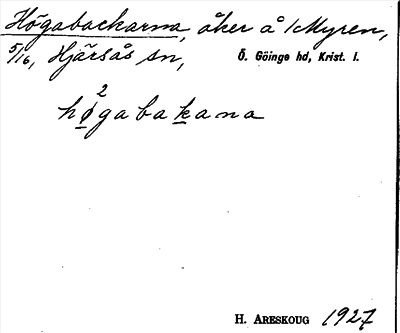 Högabackarna, åker å Myren,
5/16, Hjärsås sn, Ö. Göinge hd, Krist. l.
2
høgabakana
H. ARESKOUG 1927